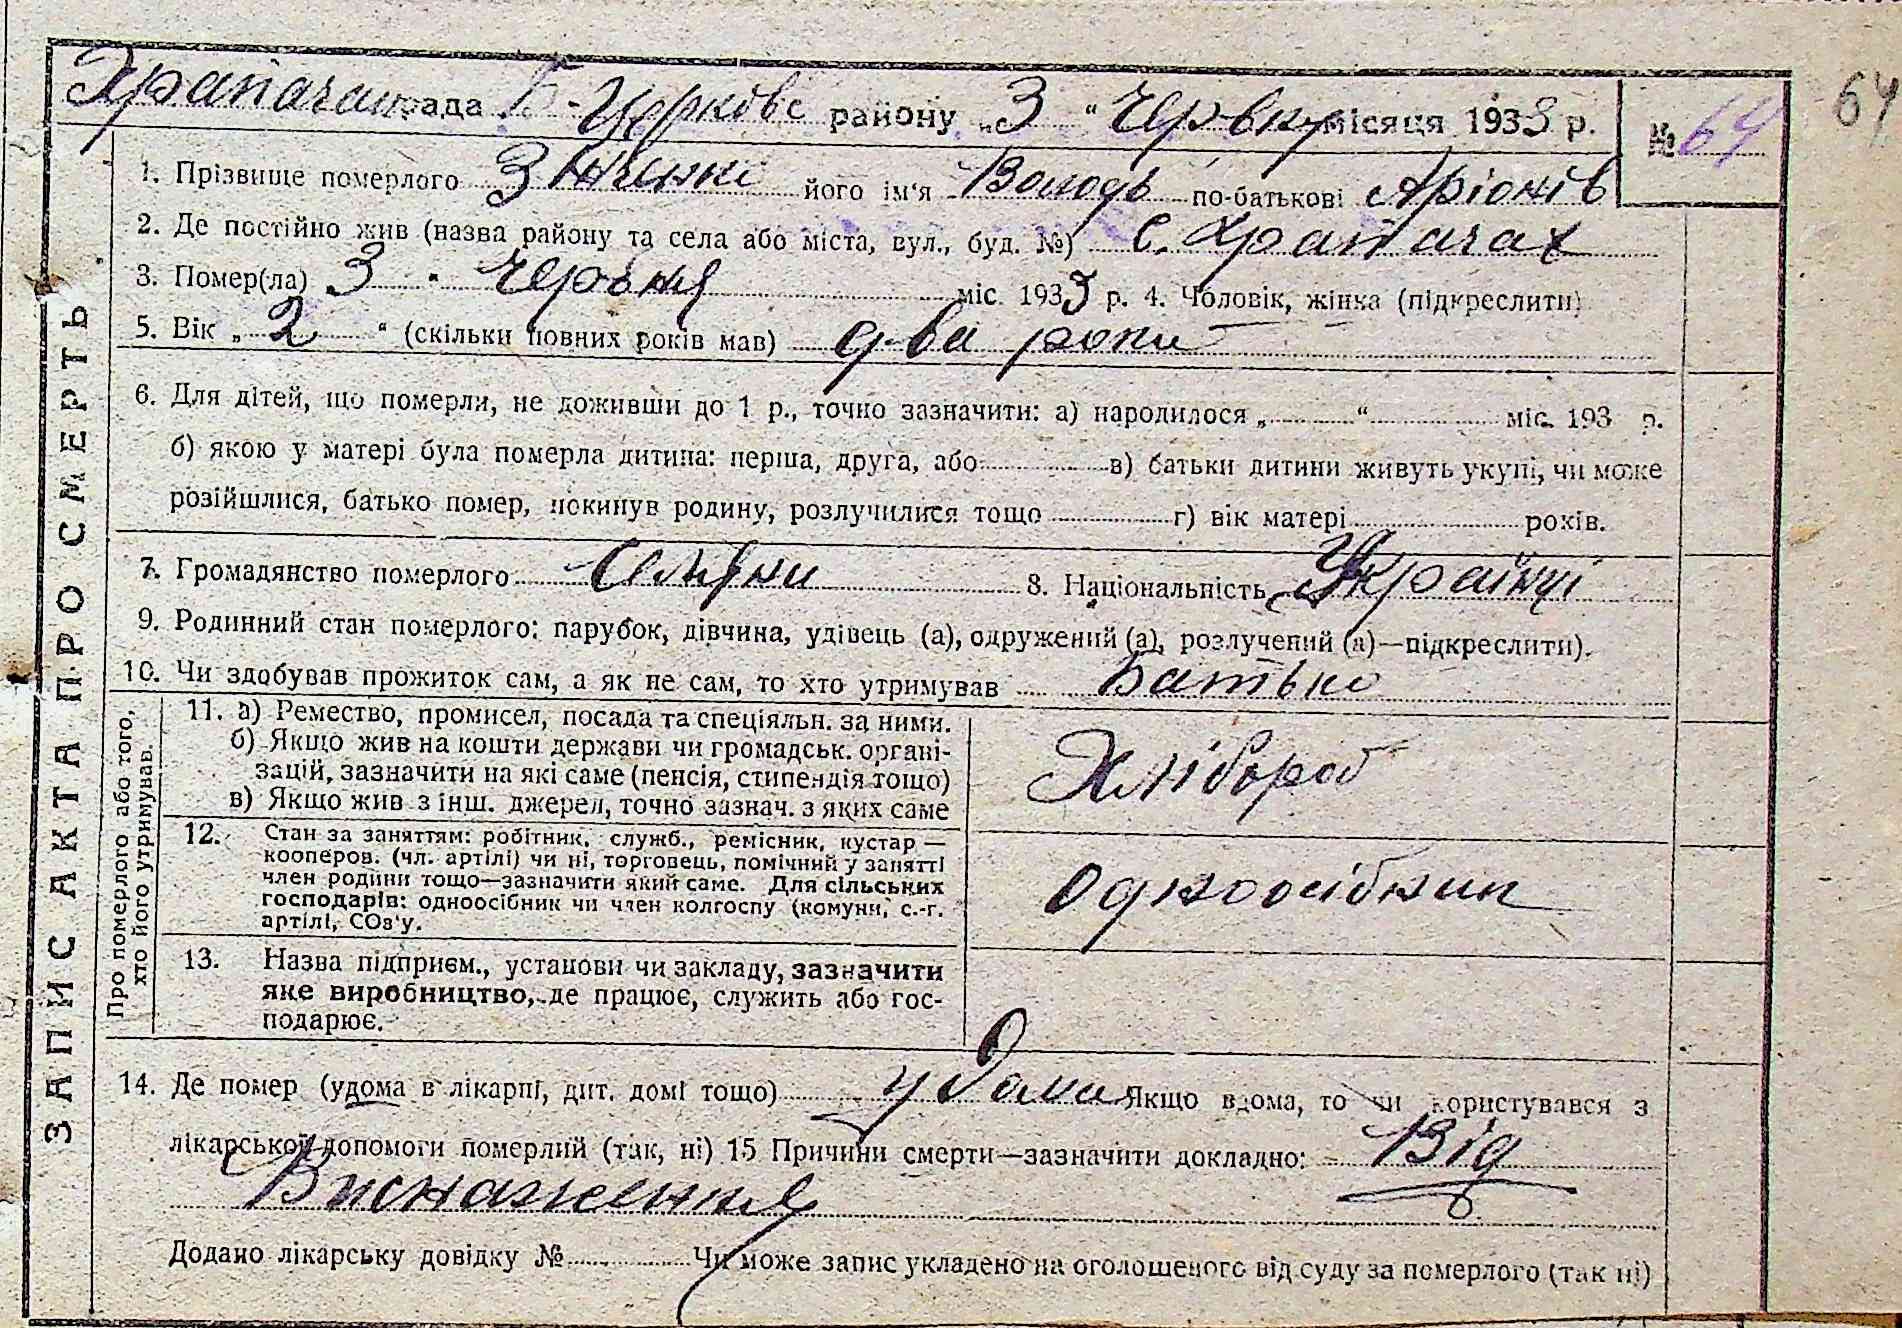 Храпачан рада Б-Церковс району „3“ Червня місяця 1933 р. № 64
64
1. Прізвище померлого Зінченко його ім'я Володь по-батькові Аріонів
2. Де постійно жив (назва району та села або міста, вул., буд. №) с. Храпачах
3. Помер(ла) 3 Червня міс. 1933 р. 4. Чоловік, жінка (підкреслити)
5. Вік „ 2 “ (скільки повних років мав) два роки
6. Для дітей, що померли, не доживши до 1 р., точно зазначити: а) народилося „ “ міс. 193 р.
б) якою у матері була померла дитина: перша, друга, або в) батьки дитини живуть укупі, чи може
розійшлися, батько помер, покинув родину, розлучилися тощо г) вік матері років.
7. Громадянство померлого 8. Національність Українці
9. Родинний стан померлого: парубок, дівчина, удівець (а), одружений (а), розлучений (а)—підкреслити).
10. Чи здобував прожиток сам, а як не сам, то хто утримував Батько
ЗАПИС АКТА ПРО СМЕРТЬ
Про померлого або того,
хто його утримував.
11. а) Ремество, промисел, посада та спеціяльн. за ними.
б) Якщо жив на кошти держави чи громадськ. органі-
зацій, зазначити на які саме (пенсія, стипендія тощо)
в) Якщо жив з інш. джерел, точно зазнач. з яких саме
Хлібороб
12. Стан за заняттям: робітник, служб., ремісник, кустар —
кооперов. (чл. артілі) чи ні, торговець, помічний у занятті
член родини тощо—зазначити який саме. Для сільських
господарів: одноосібник чи член колгоспу (комуни, с.-г.
артілі, СОз'у.
Одноосібник
13. Назва підприєм., установи чи закладу, зазначити
яке виробництво, де працює, служить або гос-
подарює.
14. Де помер (удома в лікарні, дит. домі тощо) у дома Якщо вдома, то чи користувався з
лікарської допомоги померлий (так, ні) 15 Причини смерти—зазначити докладно: Від
Виснаження
Додано лікарську довідку № Чи може запис укладено на оголошеного від суду за померлого (так ні)